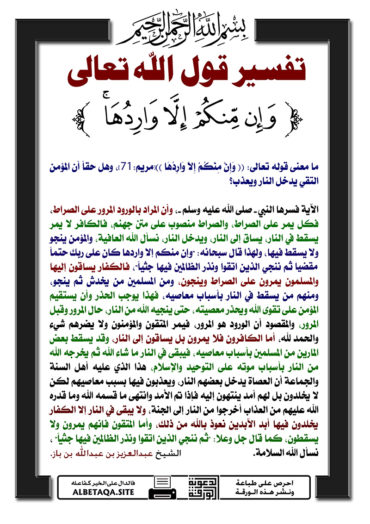 بسم الله الرحمن الرحيم
تفسير قول الله تعالى
﴿ وَإِن مِّنكُمْ إِلَّا وَارِدُهَا ۚ ﴾
ما معنى قوله تعالى: (( وَإِنْ مِنْكُمْ إِلَّا وَارِدُهَا ))[مريم:71]، وهل حقاً أن المؤمن
التقي يدخل النار ويعذب؟
الآية فسرها النبي ـ صلى الله عليه وسلم ـ، وأن المراد بالورود المرور على الصراط،
فكل يمر على الصراط، والصراط منصوب على متن جهنم، فالكافر لا يمر
يسقط في النار، يساق إلى النار، ويدخل النار، نسأل الله العافية، والمؤمن ينجو
ولا يسقط فيها، ولهذا قال سبحانه: "وإن منكم إلا واردها كان على ربك حتماً
مقضيا ثم ننجي الذين اتقوا ونذر الظالمين فيها جثياً"، فالكفار يساقون إليها
والمسلمون يمرون على الصراط وينجون، ومن المسلمين من يخدش ثم ينجو،
ومنهم من يسقط في النار بأسباب معاصيه، فهذا يوجب الحذر وأن يستقيم
المؤمن على تقوى الله ويحذر معصيته، حتى ينجيه الله من النار، حال المرور وقبل
المرور، والمقصود أن الورود هو المرور، فيمر المتقون والمؤمنون ولا يضرهم شيء
والحمد لله، أما الكافرون فلا يمرون بل يساقون إلى النار، وقد يسقط بعض
المارين من المسلمين بأسباب معاصيه، فيبقى في النار ما شاء الله ثم يخرجه الله
من النار بأسباب موته على التوحيد والإسلام، هذا الذي عليه أهل السنة
والجماعة أن العصاة يدخل بعضهم النار، ويعذبون فيها بسبب معاصيهم لكن
لا يخلدون بل لهم أمد ينتهون إليه فإذا تم الأمد وانتهى ما قسمه الله وما قدره
الله عليهم من العذاب أخرجوا من النار إلى الجنة، ولا يبقى في النار إلا الكفار
يخلدون فيها أبد الآبدين نعوذ بالله من ذلك، وأما المتقون فإنهم يمرون ولا
يسقطون، كما قال جل وعلا: "ثم ننجي الذين اتقوا ونذر الظالمين فيها جثياً"،
نسأل الله السلامة. الشيخ عبدالعزيز بن عبدالله بن باز.
احرص على طباعة
ونشر هذه الورقة
الورقة الدعوية
فالدال على الخير كفاعله
ALBETAQA.SITE